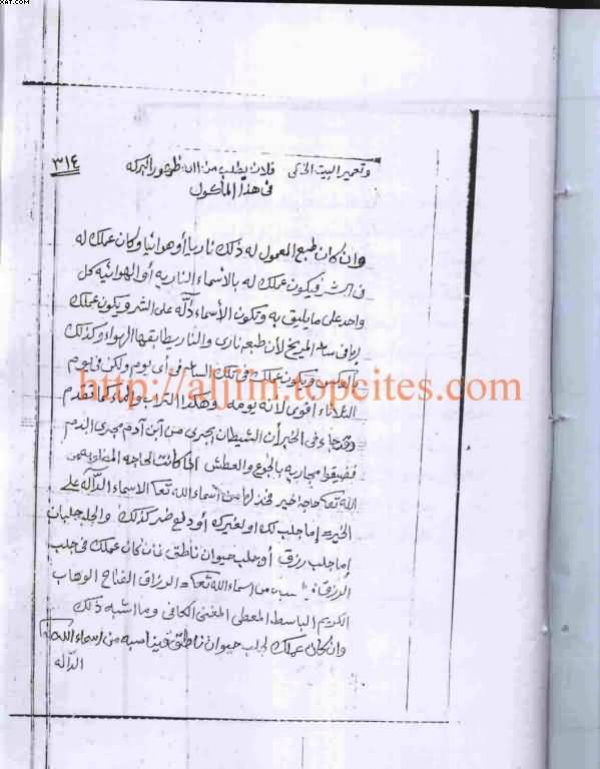 XAT.COM
وتعمير البيت فلان يطلب من الله ظهور البركه
٣١٤
فى هذا المأكول
وان كان طبع المعمول له ذلك ناريا أو هوائيا وكان عملك له
فى الشر فيكون عملك له بالأسماء الناريه أو الهوائيه كل
واحد على ما يليق به وتكون الأسماء دآلة على الشر ويكون عملك
فى ساعة المريخ لأن طبعه نارى والنار يطابقها الهواء وكذلك
بالعكس ويكون عملك فى تلك الساعه فى أى يوم ولكن فى يوم
الثلاثاء أقوى لأنه يومه وهذا التراب والماء كما تقدم
وقد جاء فى الخبر أن الشيطان يجرى من ابن آدم مجرى الدم
فضيقوا مجاريه بالجوع والعطش كانت الحاجه المطلوبه من
الله تعا حاجة خير فخذ لها من أسماء الله تعا الاسماء الدآلة على
الخير إما جلب لك او لغيرك أو دفع ضر كذلك والجلب جلبان
إما جلب رزق أو جلب حيوان ناطق فان كان عملك فى جلب
الرزق من اسماء الله تعا الرزاق الفتاح الوهاب
الكريم الباسط المعطى المغنى الكافى وما اشبه ذلك
وان كان عملك لجلب حيوان ناطق فيناسبه من اسماء الله
الداله
http://aljiin.topcites.com